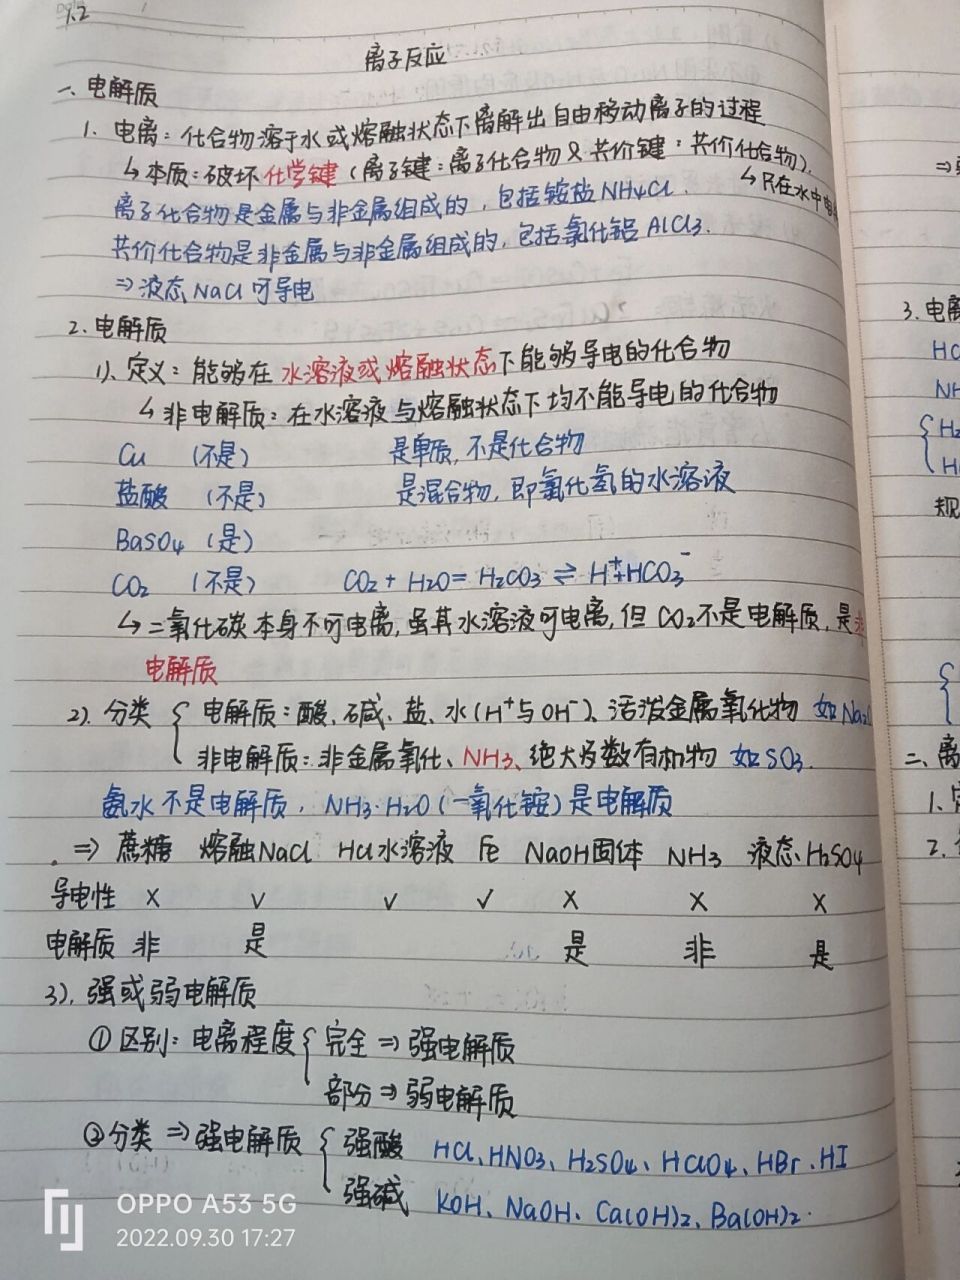 1.2
离子反应
一、电解质
1. 电离：化合物溶于水或熔融状态下离解出自由移动离子的过程
↳本质：破坏化学键（离子键：离子化合物 & 共价键：共价化合物）.
↳只在水中电
离子化合物是金属与非金属组成的，包括铵盐NH4Cl.
共价化合物是非金属与非金属组成的，包括氯化铝 AlCl3.
⇒液态NaCl可导电
2. 电解质
1)、定义：能够在水溶液或熔融状态下能够导电的化合物
↳非电解质：在水溶液与熔融状态下均不能导电的化合物
Cu （不是） 是单质，不是化合物
盐酸 （不是） 是混合物，即氯化氢的水溶液
BaSO4 （是）
CO2 （不是） CO2 + H2O = H2CO3 ⇌ H⁺+HCO3⁻
↳二氧化碳本身不可电离，虽其水溶液可电离，但CO2不是电解质，是非
电解质
2). 分类 { 电解质：酸、碱、盐、水(H⁺与OH⁻)、活泼金属氧化物 如Na2O
非电解质：非金属氧化、NH3、绝大多数有机物 如SO3.
氨水不是电解质，NH3·H2O（一氧化铵）是电解质
. ⇒ 蔗糖 熔融NaCl HCl水溶液 Fe NaOH固体 NH3 液态H2SO4
导电性 × ✓ ✓ ✓ × × ×
电解质 非 是 是 非 是
3). 强或弱电解质
①区别：电离程度 { 完全⇒强电解质
部分⇒弱电解质
②分类⇒强电解质 { 强酸 HCl、HNO3、H2SO4、HClO4、HBr、HI
强碱 KOH、NaOH、Ca(OH)2、Ba(OH)2.
3. 电离
HC
NH
{ H2
H
规
二、离
1.
2.
OPPO A53 5G
2022.09.30 17:27